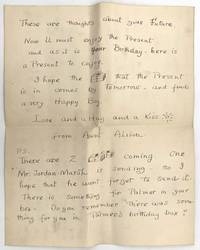 These are thoughts about your Future
Now I'll must enjoy the Present
and as it is your Birthday. here is
a Present to enjoy.
I hope the that the Present
is in comes by tomorrow. and finds
a very Happy Boy.
Love and a Hug and a Kiss
from Aunt Alison
P.S.
There are 2 coming One
Mr. Jordan Marsh is sending. so I
hope that he wont forget to send it.
There is something for Palmer in your
box. Do you remember there was some
thing for you in Palmer's birthday box?